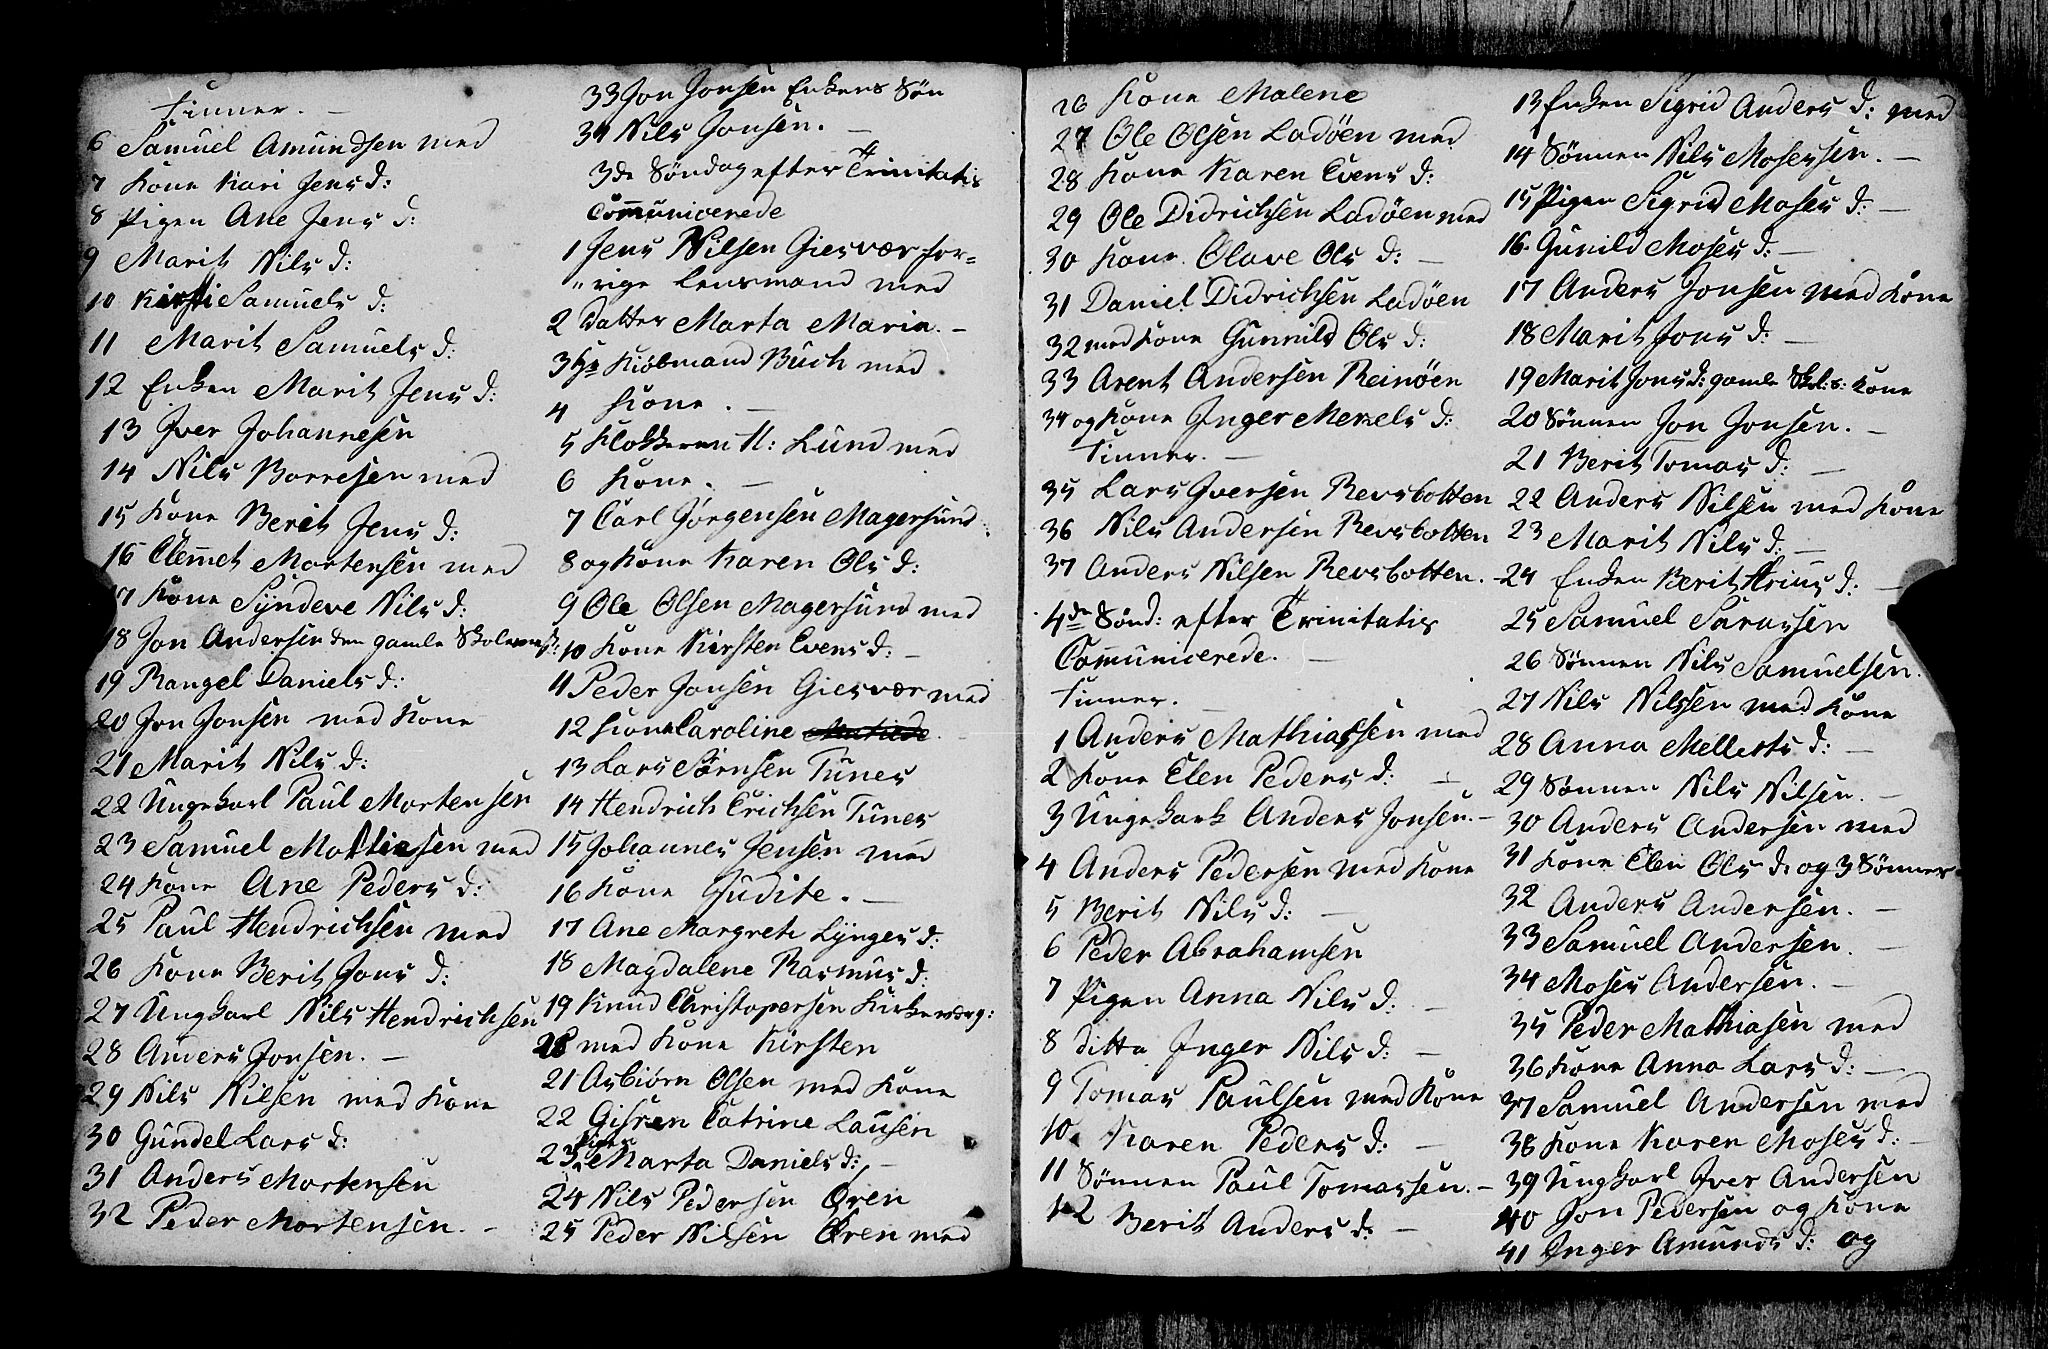 Finner. —
6 Samuel Amundsen med
7 Kone Kari Jens d:
8 Pigen Ane Jens d:
9 Marit Nils d:
10 Kirsti Samuels d:
11 Marit Samuels d:
12 Enken Marit Jens d:
13 Iver Johannesen
14 Nils Borresen med
15 Kone Berit Jens d:
16 Clem̄et Mortensen med
17 Kone Syndeve Nils d:
18 Jon Andersen den gamle Skolemest:
19 Rangel Daniels d:
20 Jon Jonsen med Kone
21 Marit Nils d:
22 Ungekarl Paul Mortensen
23 Samuel Mattiesen med
24 Kone Ane Peders d:
25 Paul Hendrichsen med
26 Kone Berit Jons d:
27 Ungkarl Nils Hendrichsen
28 Anders Jonsen. —
29 Nils Nilsen med Kone
30 Gundel Lars d:
31 Anders Mortensen
32 Peder Mortensen. —
33 Jon Jonsen Enkens Søn
34 Nils Jonsen. —
3de Søndag efter Trinitatis
Com̄unicerede
1 Jens Nilsen Giesvær for=
"rige Lensmand med
2 Datter Marta Maria. —
3 Hr Kiøbmand Buch med
4 Kone. —
5 Klokkeren H: Lund med
6 Kone. —
7 Carl Jørgensen Magersund
8 og Kone Karen Ols d:
9 Ole Olsen Magersund med
10 Kone Kirsten Evens d: —
11 Peder Jonsen Giesvær med
12 Kone Caroline Matilde.
13 Lars Sørnsen Tunes
14 Hendrich Erichsen Tunes
15 Johannes Jensen med
16 Kone Judite. —
17 Ane Margrete Lynges d:
18 Magdalene Rasmus d:
19 Knud Christopersen Kirkeværg:
20 med Kone Kirsten
21 Asbiørn Olsen med Kone
22 Gisken Catrine Lausen
Pigen
23 Marta Daniels d: —
24 Nils Pedersen Øren
25 Peder Nilsen Øren med
26 Kone Malene
27 Ole Olsen Ladøen med
28 Kone Karen Evens d:
29 Ole Didrichsen Ladøen med
30 Kone Olave Ols d: —
31 Daniel Didrichsen Ladøen
32 med Kone Gunnild Ols d:
33 Arent Andersen Reinøen
34 og Kone Inger Mekels d:
Finner. —
35 Lars Iversen Revsbotten
36 Nils Andersen Revsbotten
37 Anders Nilsen Revsbotten. —
4de Sønd: efter Trinitatis
Com̄unicerede. —
Finner. —
1 Anders Mathiassen med
2 Kone Elen Peders d: —
3 Ungekarl Anders Jonsen. —
4 Anders Pedersen med Kone
5 Berit Nils d: —
6 Peder Abrahamsen
7 Pigen Anna Nils d: —
8 ditto Inger Nils d: —
9 Tomas Paulsen med Kone
10. Karen Peders d: —
11 Sønnen Paul Tomassen. —
12 Berit Anders d: —
13 Enken Sigrid Anders d: med
14 Sønnen Nils Mosessen. —
15 Pigen Sigrid Moses d: —
16. Gunild Moses d: —
17 Anders Jonsen med Kone
18 Marit Jons d: —
19 Marit Jons d: gamle Skol:s: Kone
20 Sønnen Jon Jonsen. —
21 Berit Tomas d: —
22 Anders Nilsen med Kone
23 Marit Nils d: —
24 Enken Berit d: —
25 Samuel Sarassen
26 Sønnen Nils Samuelsen.
27 Nils Nilssen med Kone
28 Anna Mellets d: —
29 Sønnen Nils Nilsen. —
30 Anders Andersen med
31 Kone Elen Ols d: og 3 Sønner
32 Anders Andersen. —
33 Samuel Andersen. —
34 Moses Andersen. —
35 Peder Mathiasen med
36 Kone Anna Lars d: —
37 Samuel Andersen med
38 Kone Karen Moses d: —
39 Ungkarl Iver Andersen
40 Jon Pedersen og Kone
41 Inger Amunds d: og